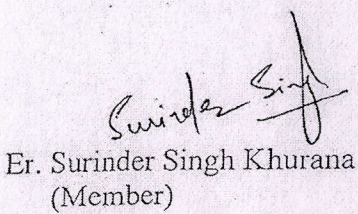 Surinder Singh
Er. Surinder Singh Khurana
(Member)